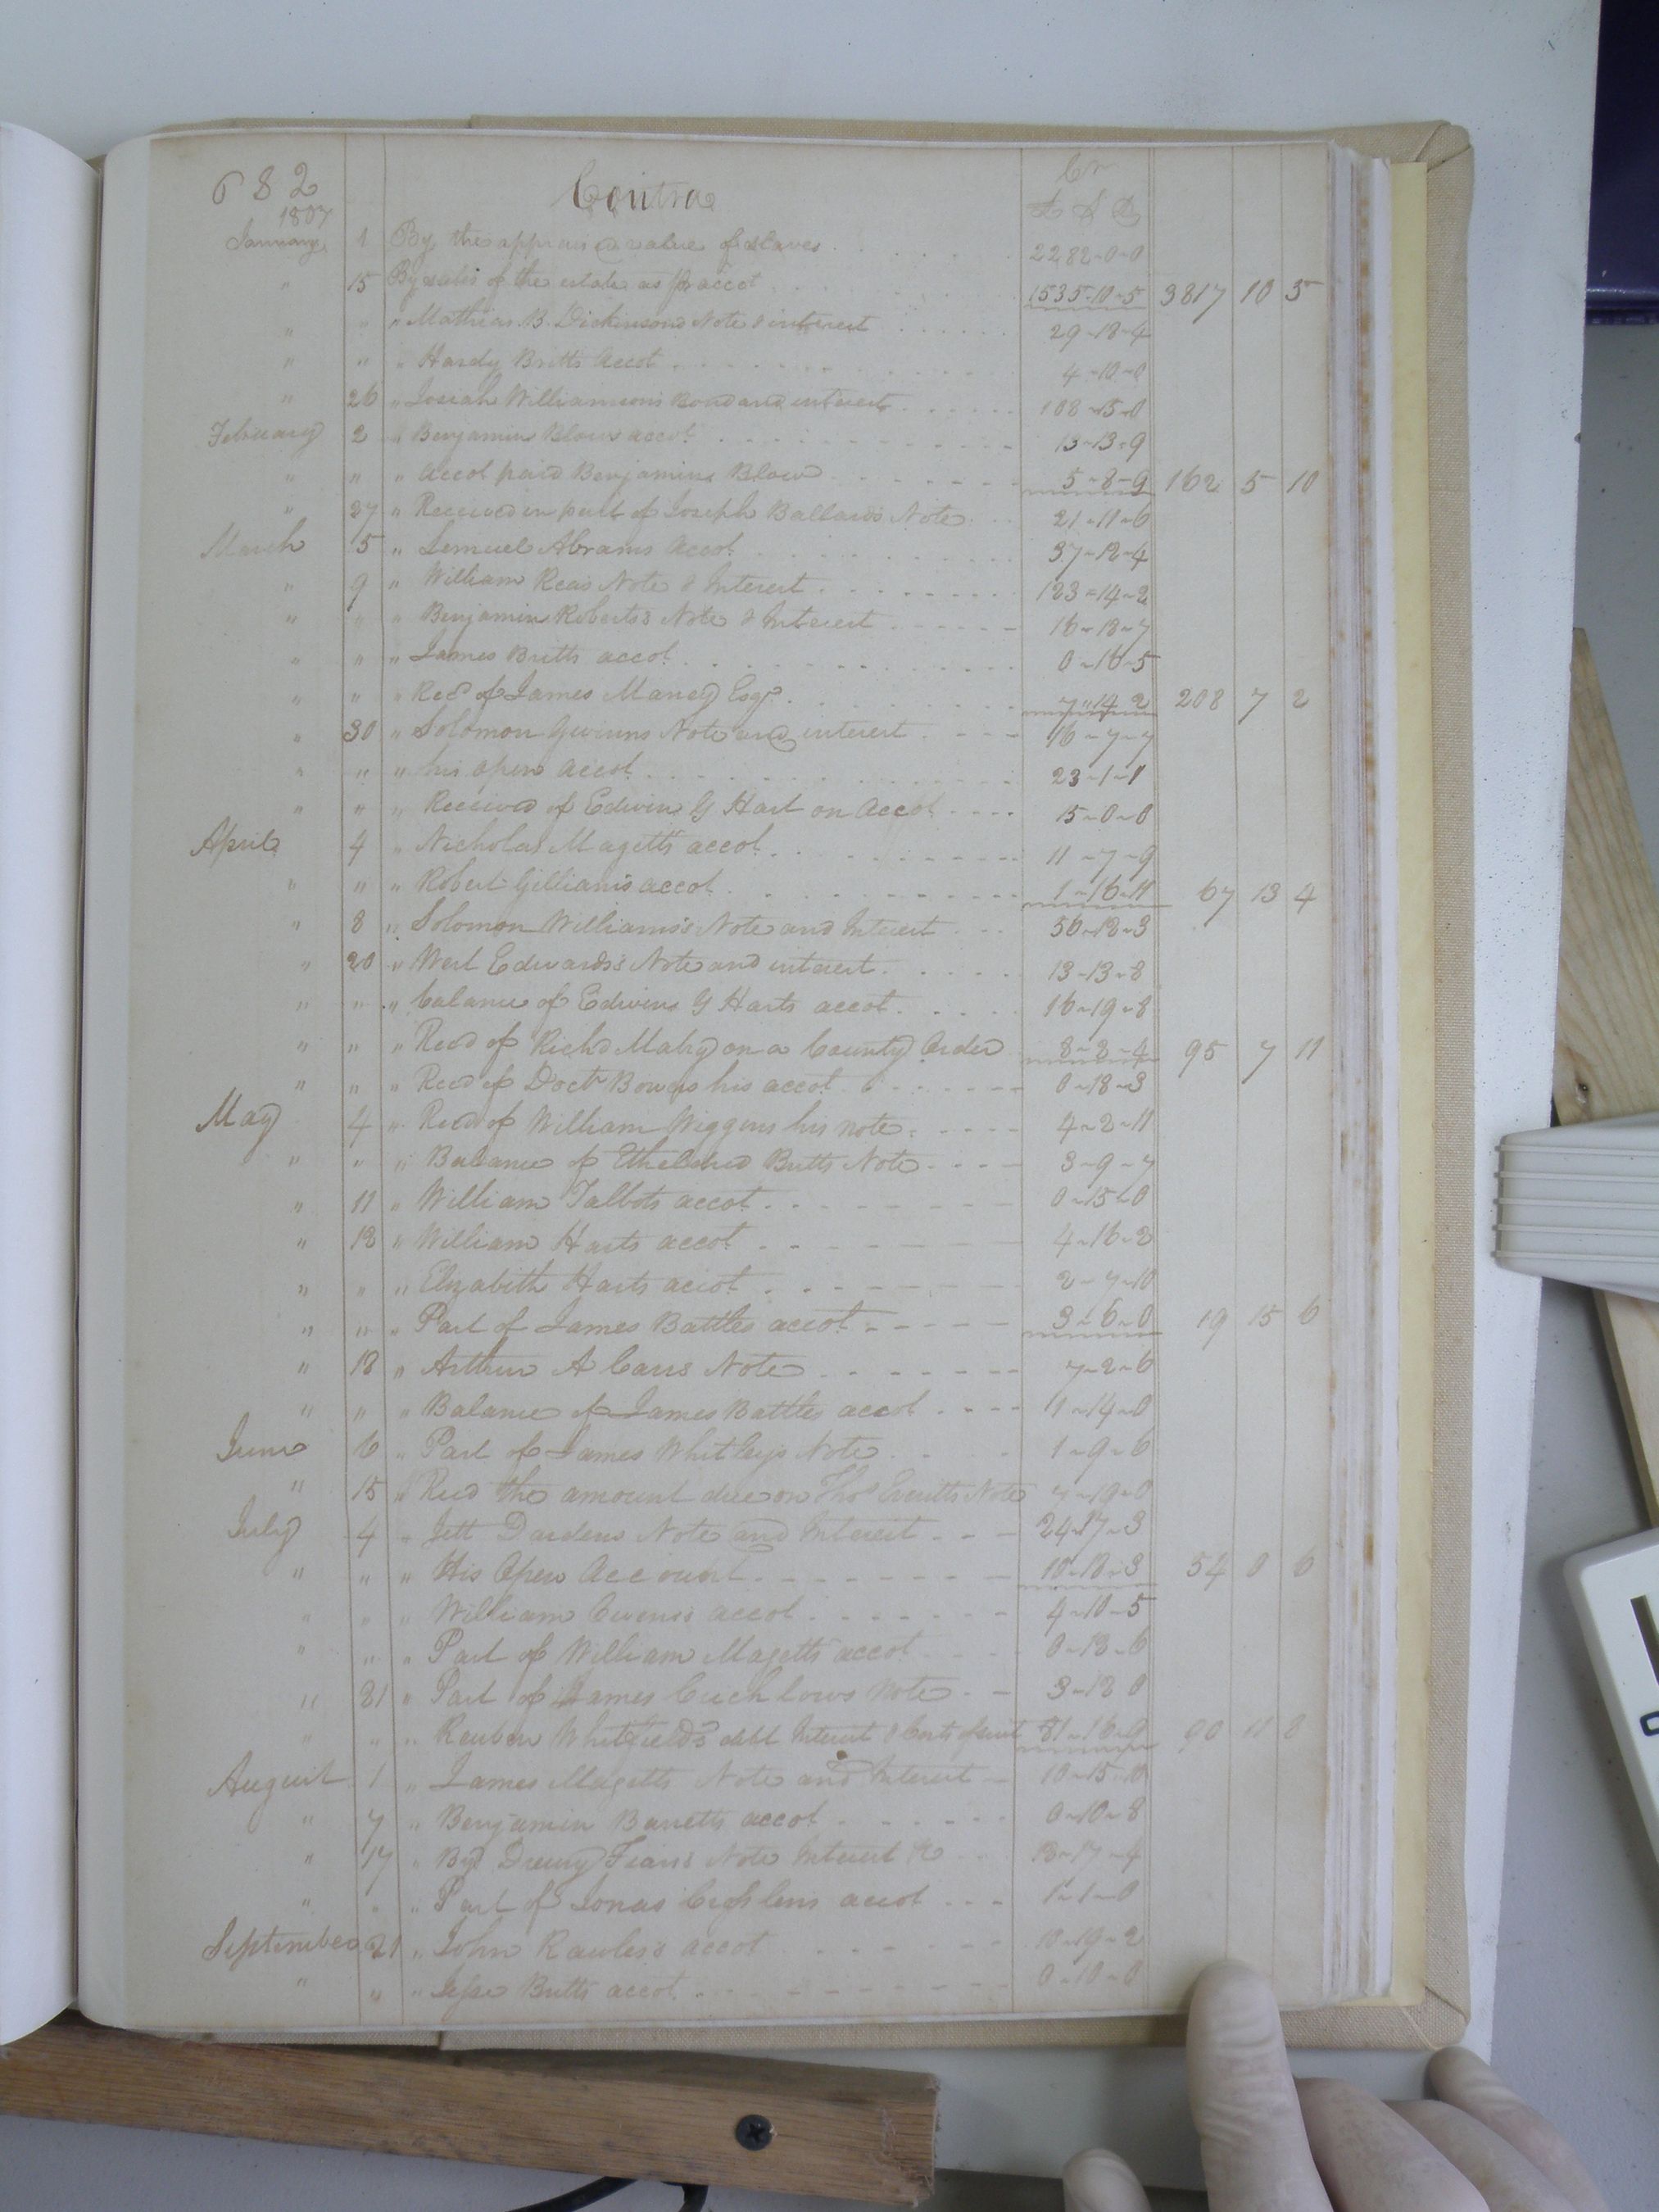 682 Contra Cr
1807 £ S D
January 1 By the appraised value of slaves 2282-0-0
" 15 By sales of the estate as pr accot 1535-10-5 3817 10 5
" " " Mathias B. Dickinsons Note & interest 29-18-4
" " " Hardy Britts Accot 4-10-0
" 26 " Josiah Williamsons Bond and interest 108-15-0
February 2 " Benjamin Blows accot 13-13-9
" " " Accot paid Benjamin Blow 5-8-9 162 5 10
" 27 " Received in part of Joseph Ballards Note 21-11-6
March 5 " Lemuel Abrams Accot 37-12-4
" 9 " William Reas Note & Interest 123-14-2
" " " Benjamin Roberts's Note & Interest 16-18-7
" " " James Britts accot 0-16-5
" " " Recd of James Maney Esqr 7-14-2 208 7 2
" 30 " Solomon Gwinns Note and interest 16-7-7
" " " his open Accot 23-1-1
" " " Received of Edwin G Hart on Accot 15-0-0
April 4 " Nicholas Magetts accot 11-7-9
" " " Robert Gilliam's accot 1-16-11 67 13 4
" 8 " Solomon Williams's Note and Interest 56-12-3
" 20 " West Edwards's Note and interest 13-13-8
" " " balance of Edwin G Harts accot 16-19-8
" " " Recd of Richd Mabry on a County Order 8-2-4 95 7 11
" " " Recd of Doctr Bowers his accot 0-18-3
May 4 " Recd of William Wiggins his note 4-2-11
" " " Balance of Etheldred Britts Note 3-9-7
" 11 " William Talbots accot 0-15-0
" 12 " William Harts accot 4-16-2
" " " Elizabith Harts accot 2-7-10
" " " Part of James Battles accot 3-6-0 19 15 6
" 18 " Arthur A Carrs Note 7-2-6
" " " Balance of James Battles accot 1-14-0
June 6 " Part of James Whitleys Note 1-9-6
" 15 " Recd the amount due on Thos Everitts Note 7-19-0
July 4 " Jett Dardens Note and Interest 24-17-3
" " " His Open Account 10-18-3 54 0 6
" " " William Owens's accot 4-10-5
" " " Part of William Magetts accot 0-13-6
" 31 " Part of James Crichlows Note 3-12-0
" " " Reuben Whitfield's debt Interest & Costs of suit 81-16-9 90 11 8
August 1 " James Magetts Note and Interest 10-15-10
" 7 " Benjamin Barretts accot 0-10-8
" 17 " By Drewry Note Interest &c 13-17-4
" " " Part of Jonas accot 1-1-0
September 21 " John Rawles's accot 10-19-2
" " " Jesse Britts accot 0-10-0